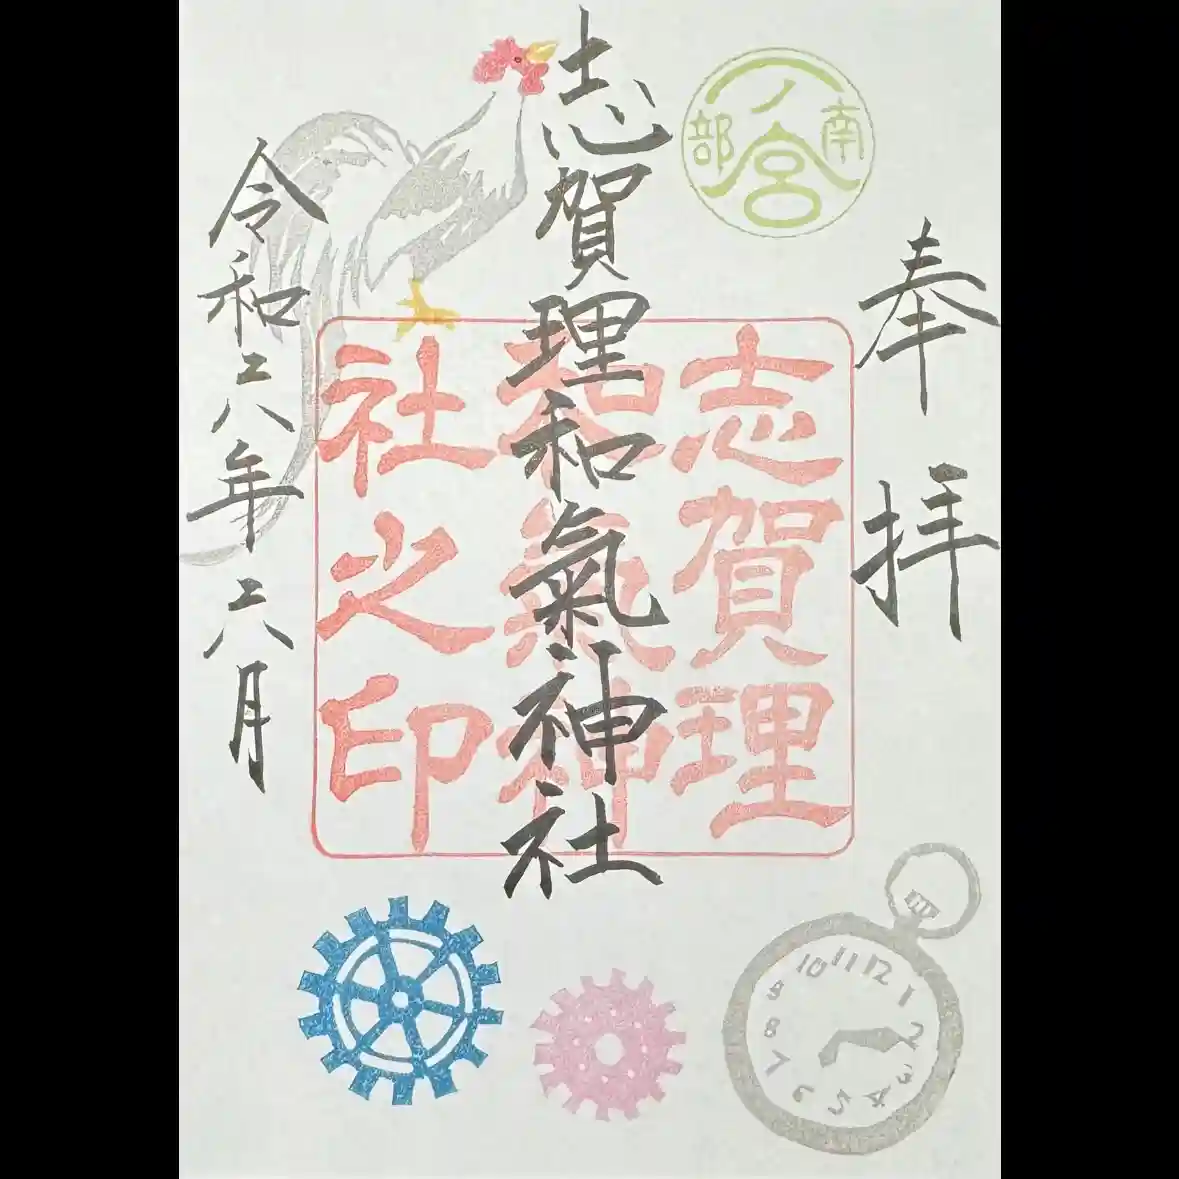 奉拝
南部
一ノ宮
志賀理和氣神社
志賀理
和氣神
社之印
令和六年六月
12 1 2 3 4 5 6 7 8 9 10 11